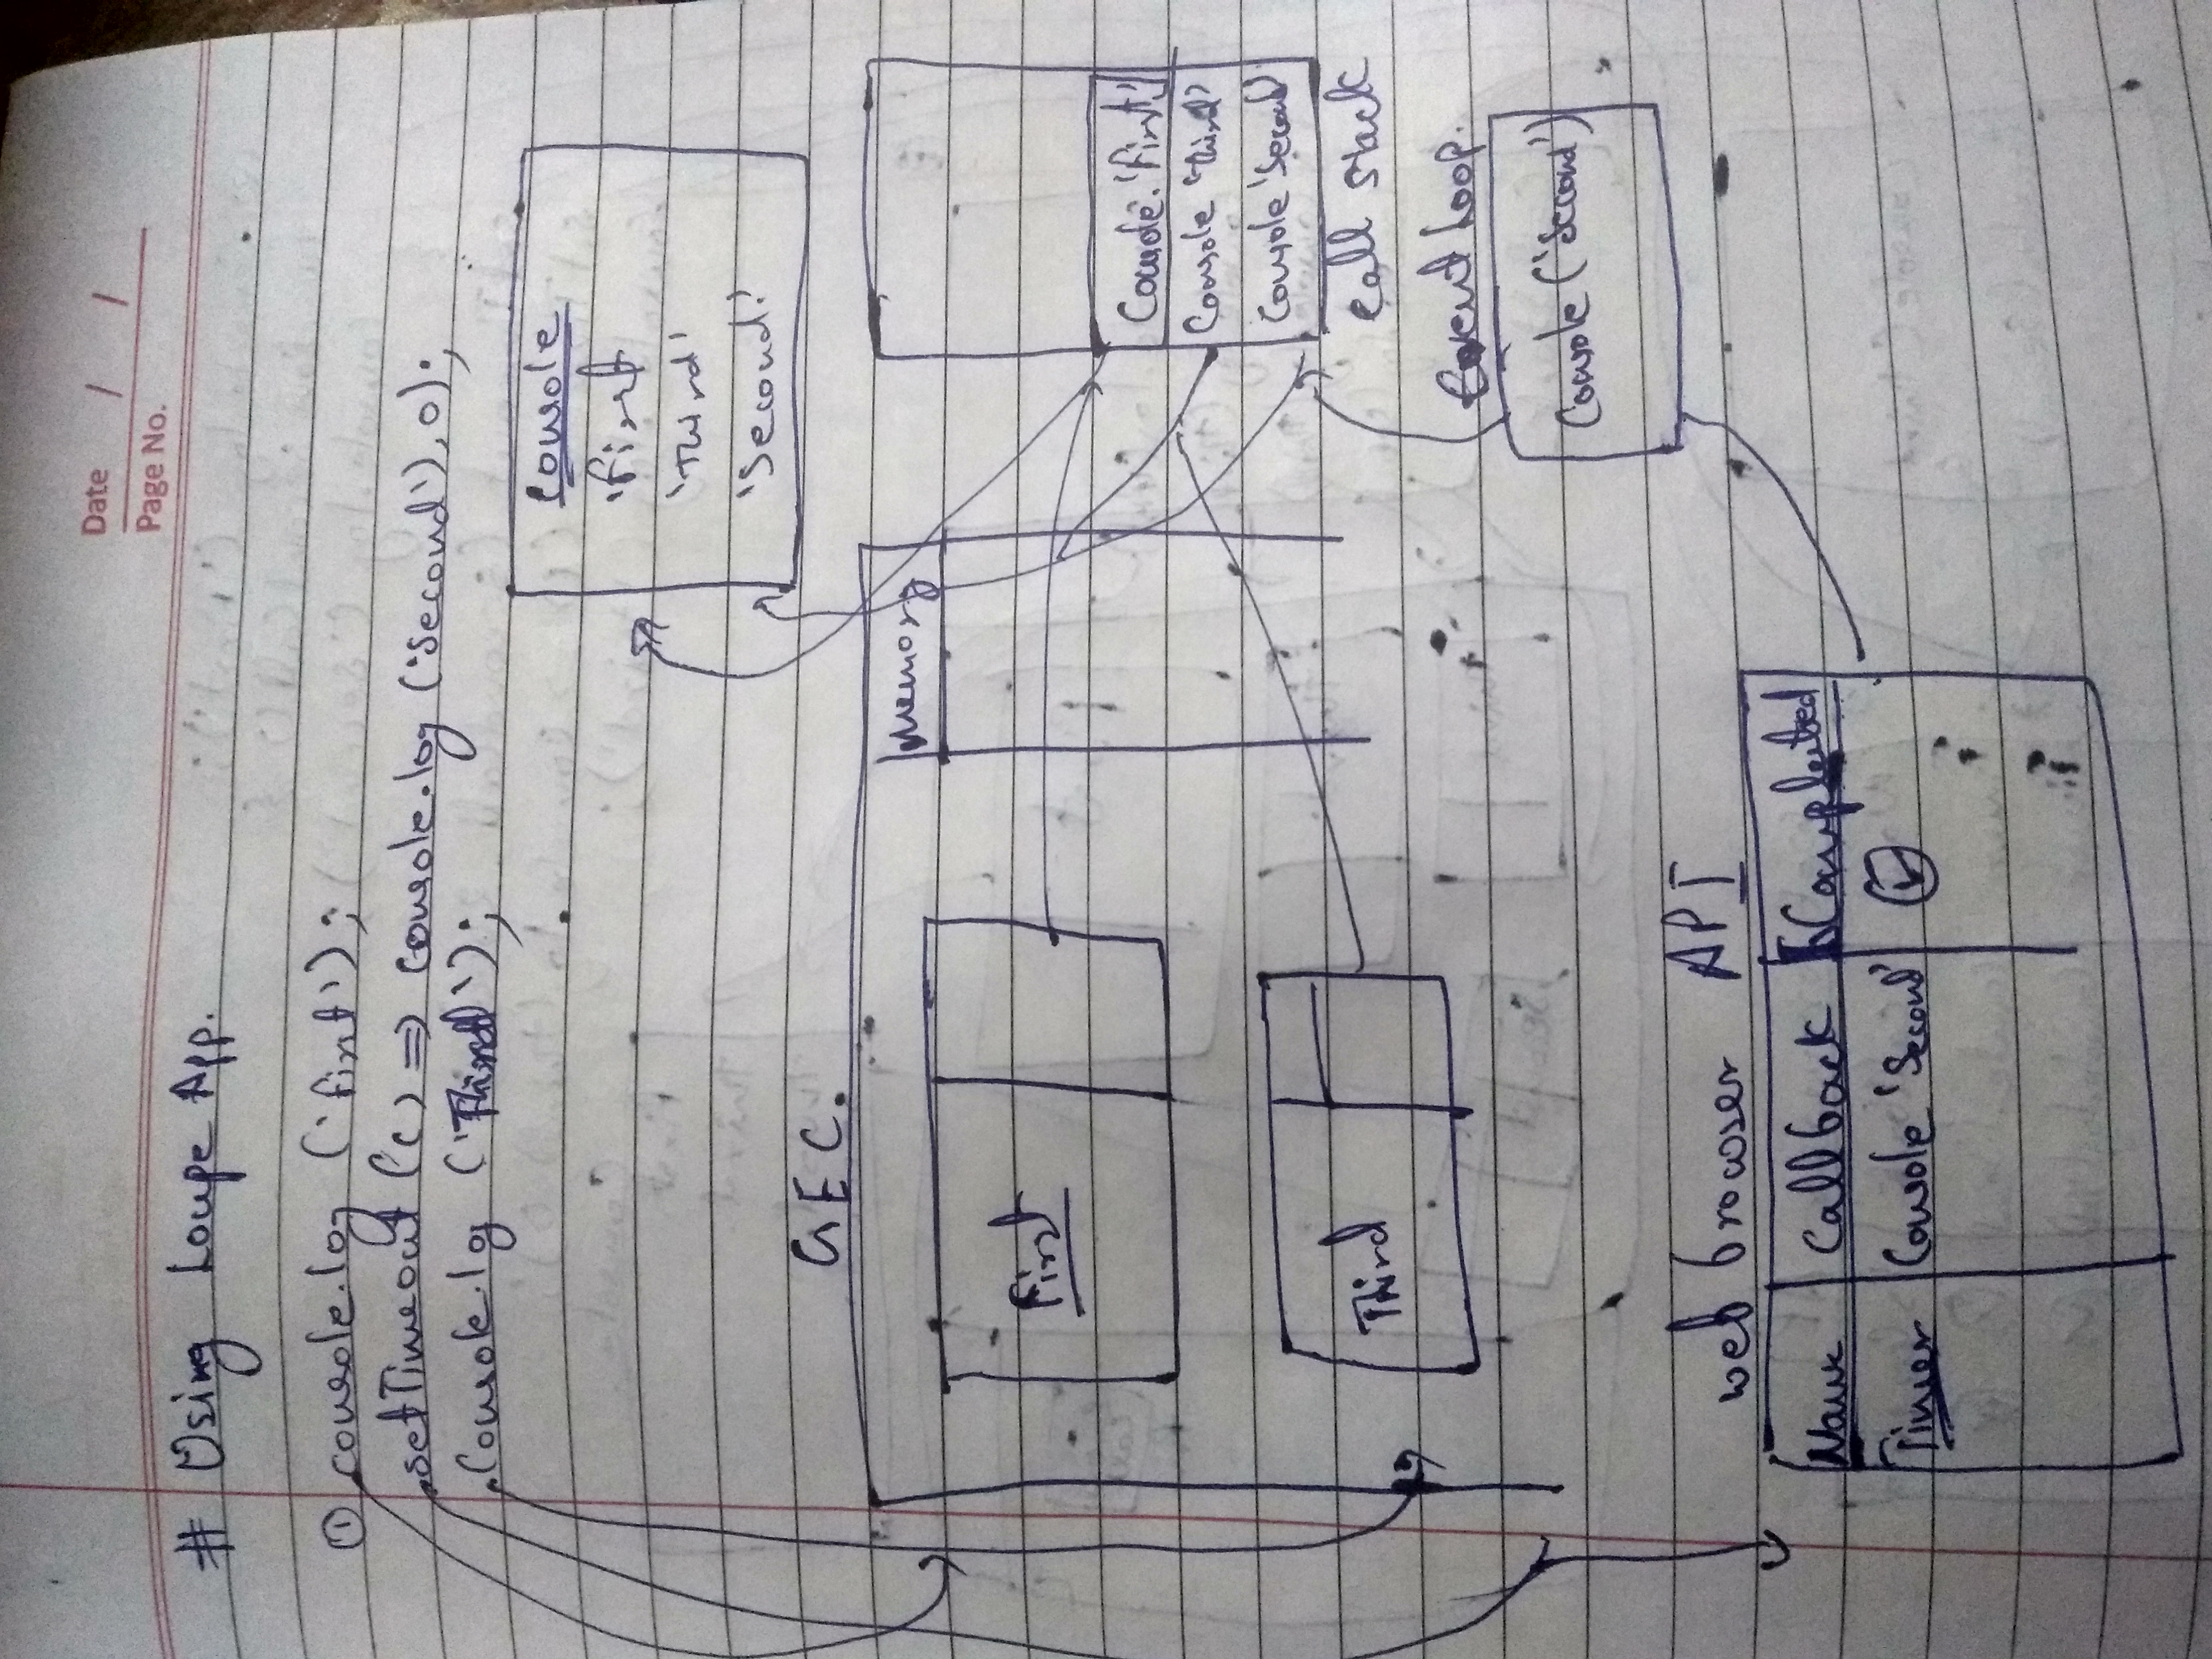 Date / /
Page No.
# Using Loupe App.
① console.log ('first');
setTimeout (() => console.log ('Second'), 0);
Console.log ('Third');
Console
'First
'Third'
'Second'
GEC.
Memory
First
Console. 'First'
Console 'Third'
Console 'Second'
Call Stack
Third
Event Loop.
Console ('Second')
web browser API
Name Callback Completed
Timer Console 'Second'